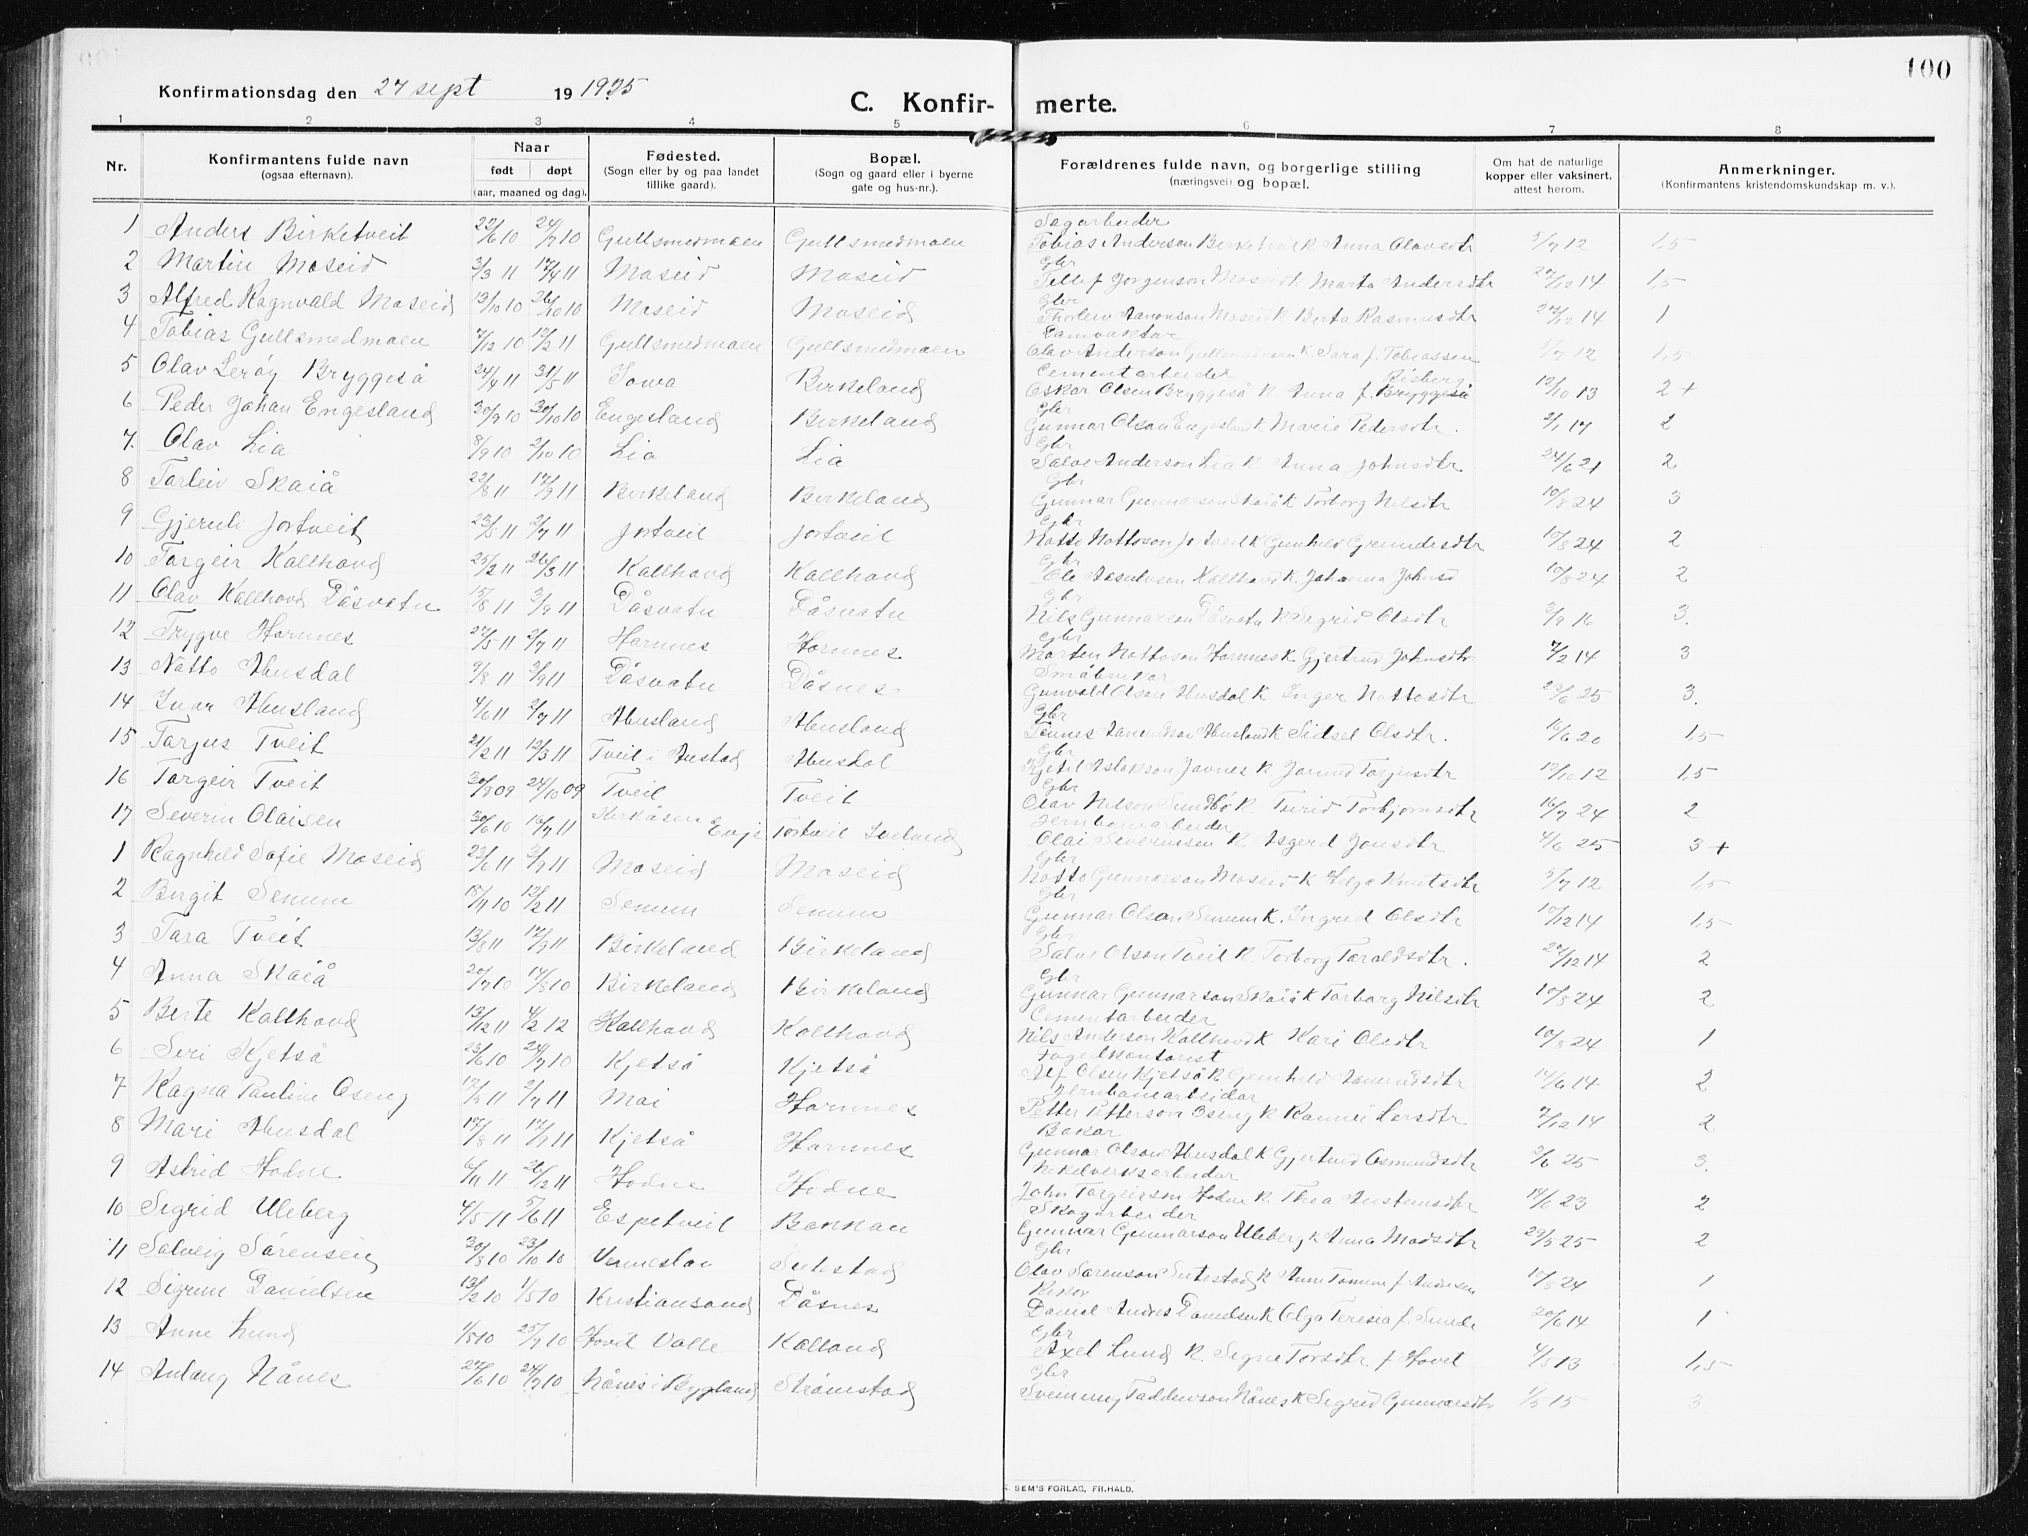 100
Konfirmationsdag den 27 sept 19 1925
C. Konfir- merte.
1 2 3 4 5 6 7 8
Nr. Konfirmantens fulde navn (ogsaa efternavn). Naar født døpt (aar, maaned og dag). Fødested. (Sogn eller by og paa landet tillike gaard). Bopæl. (Sogn og gaard eller i byerne gate og hus-nr.). Forældrenes fulde navn, og borgerlige stilling (næringsvei) og bopæl. Om hat de naturlige kopper eller vaksinert, attest herom. Anmerkninger. (Konfirmantens kristendomskundskap m. v.).
Sagarbeider
1 Anders Birketveit 22/6 10 24/7 10 Gullsmedmoen Gullsmedmoen Tobias Anderson Birketveit k Anna Olavsdtr 5/7 12 1,5
Gbr
2 Martin Moseid 3/3 11 17/4 11 Moseid Moseid Tellef Jorgenson Moseid k Marta Andersdtr 27/12 14 1,5
Gbr
3 Alfred Ragnvald Moseid 13/10 10 26/10 10 Moseid Moseid Thorleiv Aanonson Moseid k Berta Rasmusdtr 27/12 14 1
Damvaktar
4 Tobias Gullsmedmoen 7/12 10 12/2 11 Gullsmedmoen Gullsmedmoen Olav Anderson Gullsmedmoen k Sara f. Tobiassen 5/7 12 1,5
Cementarbeider Risberg
5 Olav Lerøy Bryggeså 24/4 11 31/5 11 Iowa Birkeland Oskar Olsen Bryggeså k. Anna f. Bryggeså 12/10 13 2 +
Gbr
6 Peder Johan Engesland 30/9 10 30/10 10 Engesland Birkeland Gunnar Olson Engesland k Marie Pedersdtr. 2/1 17 2
Gbr
7. Olav Lia 8/9 10 2/10 10 Lia Lia Salve Anderson Lia k. Anna Johnsdtr 24/6 21 2
Gbr
8 Torleiv Skaiå 22/8 11 17/9 11 Birkeland Birkeland Gunnar Gunnarson Skaiå k Torborg Nilsdtr 10/8 24 3
Gbr
9 Gjerulv Jortveit 23/5 11 2/7 11 Jortveit Jortveit Notto Nottoson Jortveit k Gunhild Grundesdtr 10/8 24 2
Gbr
10 Torgeir Kallhovd 25/2 11 26/3 11 Kallhovd Kallhovd Ole Aasulvson Kallhovd k. Johanna Johnsd 10/8 24 2
Gbr
11 Olav Kallhovd Dåsvatn 15/8 11 3/9 11 Dåsvatn Dåsvatn Nils Gunnarson Dåsvatn k Sigrid Olsdtr 2/9 16 3.
Gbr
12 Trygve Hornnes 27/5 11 2/7 11 Hornnes Hornnes Morten Nottoson Hornnes k Gjertrud Johnsdtr 7/2 14 3
Småbrukar
13 Notto Abusdal 9/8 11 3/9 11 Dåsvatn Dåsnes Gunvald Olson Abusdal k Inger Nottosdtr 23/6 25 3.
Gbr
14 Ivar Abusland 4/6 11 2/7 11 Abusland Abusland Tønnes Aanundson Abusland k Sidsel Olsdtr. 16/6 20 1,5
Gbr
15 Torjus Tveit 21/2 11 12/3 11 Tveit i Austad Abusdal Kjetil Aslakson Javnes k Jorund Torjusdtr 12/10 12 1,5
Gbr
16 Torgeir Tveit 30/9 09 24/10 09 Tveit Tveit Olav Nilson Sundbö k. Turid Torbjornsdtr 16/7 24 2
Jernbanearbeider
17 Severin Olaisen 30/6 10 16/7 11 Kirkåsen Evje Tortveit Iveland Olai Severinsen k Asgerd Jonsdtr 4/6 25 3 +
Gbr
1 Ragnhild Sofie Moseid 23/6 11 3/9 11 Moseid Moseid Notto Gunnarson Moseid k Helga Knutsdtr 5/7 12 1,5
Gbr
2 Birgit Senum 18/9 10 12/2 11 Senum Senum Gunnar Olson Senum k. Ingrid Olsdtr 10/12 14 1,5
Gbr
3 Tara Tveit 13/8 11 17/9 11 Birkeland Birkeland Salve Olson Tveit k. Torborg Taraldsdtr. 27/12 14 2
Gbr
4 Anna Skaiå 20/7 10 14/8 10 Birkeland Birkeland Gunnar Gunnarson Skaiå k Torborg Nilsdtr 10/8 24 2
Cementarbeider
5 Berte Kallhovd 13/12 11 4/2 12 Kallhovd Kallhovd Nils Anderson Kallhovd k Kari Olsdtr 10/8 24 1
Fogedkontorist
6 Siri Kjetså 23/6 10 24/7 10 Kjetså Kjetså Alf Olsen Kjetså k Gunhild Aanundsdtr 14/6 14 2
Jernbanearbeidar
7 Ragna Pauline Oseng 2/7 11 Moi Hornnes Petter Petterson Oseng k Rannei Larsdtr 7/12 14 2
Bakar
8 Mari Abusdal 17/8 11 Kjetså Hornnes Gunnar Olson Abusdal k Gjertrud Osmundsdtr 2/6 25 3.
Nikelverksarbeider
9 Astrid Hodne 6/11 11 26/12 11 Hodne Hodne John Torgeirson Hodne k. Thea Austensdtr 14/6 23 2
Skogarbeider
10 Sigrid Uleberg 4/5 11 5/6 11 Espetveit Bakkan Gunnar Gunnarson Uleberg k Anna Madsdtr 29/5 25 2
Gbr
11 Solveig Sørensen 30/8 10 23/10 10 Vennesla Sutestad Olav Sørenson Sutestad k Anne f. Andersen 10/8 24 1
12 Sigrun Danielsen 13/2 10 1/5 10 Kristiansand Dåsnes Daniel Andres Danielsen k Olga Teresia f. Sunde 20/6 14 1
Gbr
13 Anne Lund 1/5 10 25/7 10 Hovet Valle Kalland Axel Lund k. Signe Torsdtr f Hovet 4/5 13 1,5
Gbr
14 Anlaug Nånes 22/6 10 24/7 10 Nånes i Bygland Strømstad Sveinung Taddenson Nånes k Sigrid Gunnarsdtr 1/5 15 3
SEM'S FORLAG, FR.HALD.